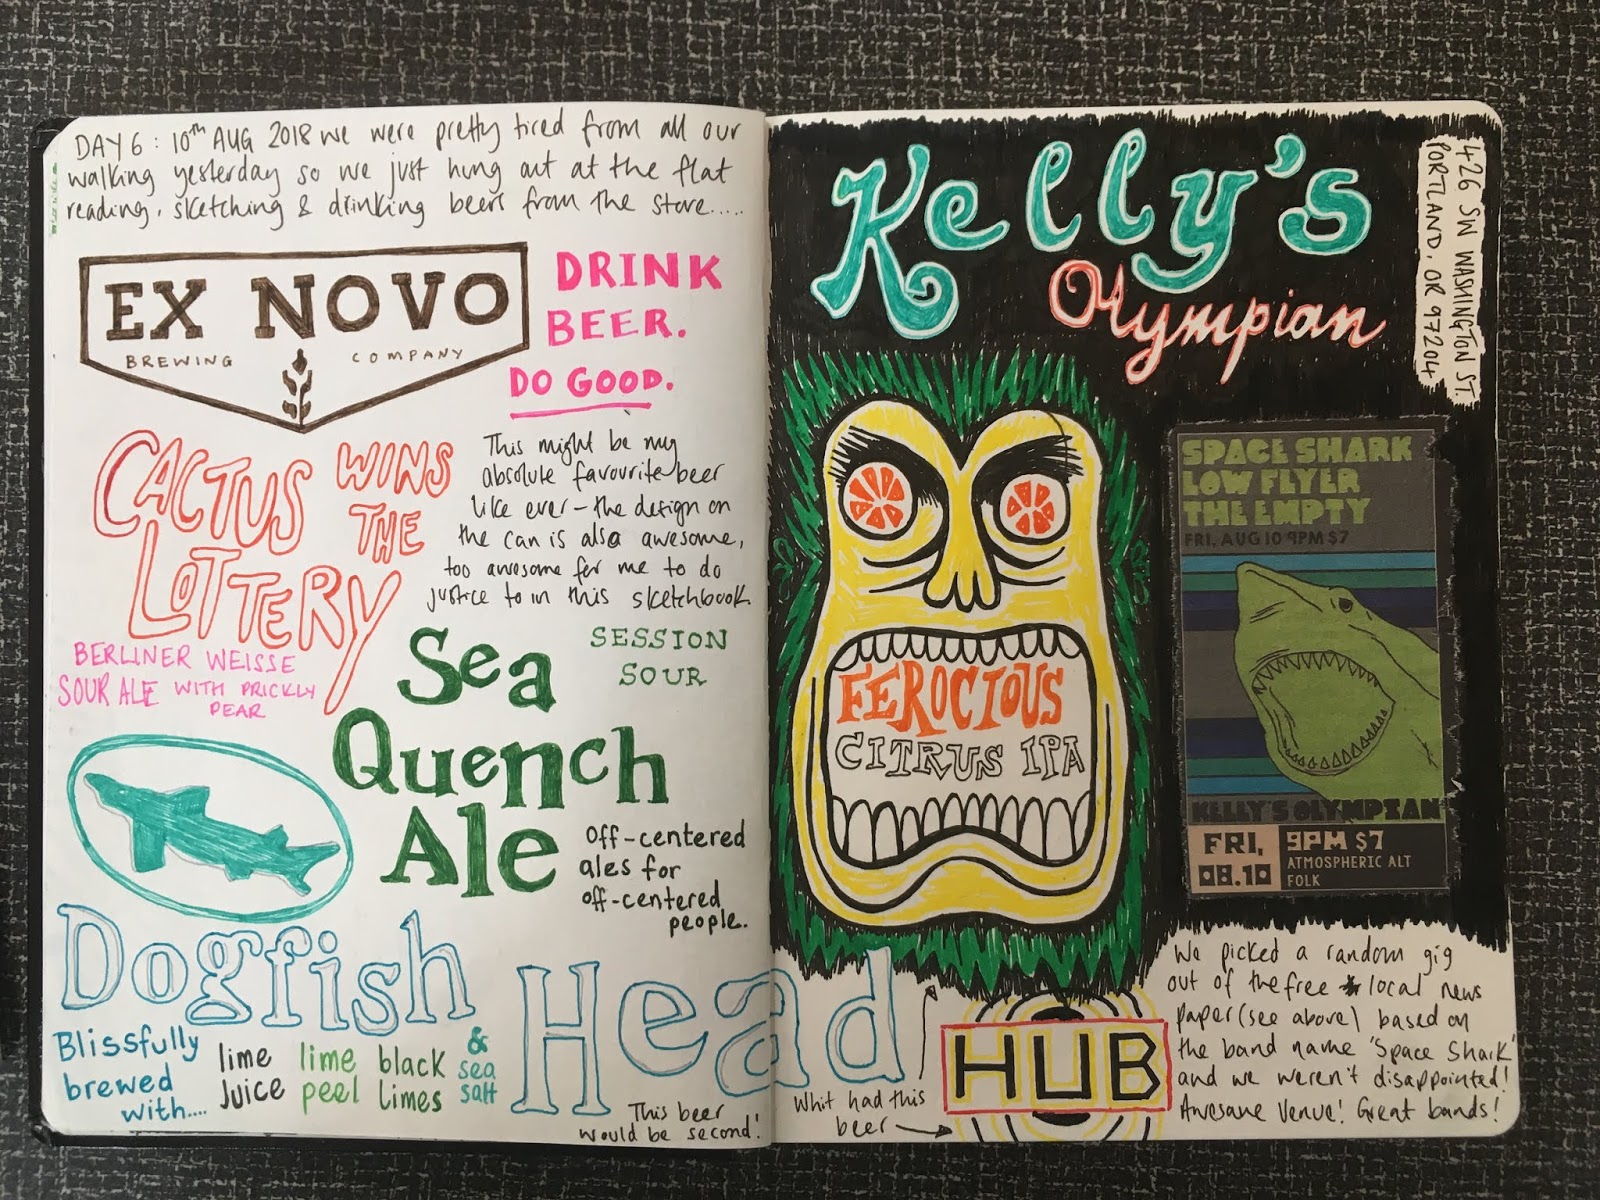 DAY 6 : 10th AUG 2018 we were pretty tired from all our
walking yesterday so we just hung out at the flat
reading, sketching & drinking beers from the store.....
EX NOVO
BREWING COMPANY
DRINK
BEER.
DO GOOD.
CACTUS WINS
THE
LOTTERY
BERLINER WEISSE
SOUR ALE WITH PRICKLY
PEAR
This might be my
absolute favourite beer
like ever - the design on
the can is also awesome,
too awesome for me to do
justice to in this sketchbook
Sea
Quench
Ale
SESSION
SOUR
Off-centered
ales for
off-centered
people.
Dogfish
Head
Blissfully
brewed
with....
lime
juice
lime
peel
black
limes
&
sea
salt
This beer
would be second!
Kelly's
Olympian
426 SW WASHINGTON ST.
PORTLAND, OR 97204
FEROCIOUS
CITRUS IPA
SPACE SHARK
LOW FLYER
THE EMPTY
FRI, AUG 10 9PM $7
KELLY'S OLYMPIAN
FRI,
08.10
9PM $7
ATMOSPHERIC ALT
FOLK
Whit had this
beer
HUB
We picked a random gig
out of the free local news
paper (see above) based on
the band name 'Space Shark'
and we weren't disappointed!
Awesome Venue! Great bands!